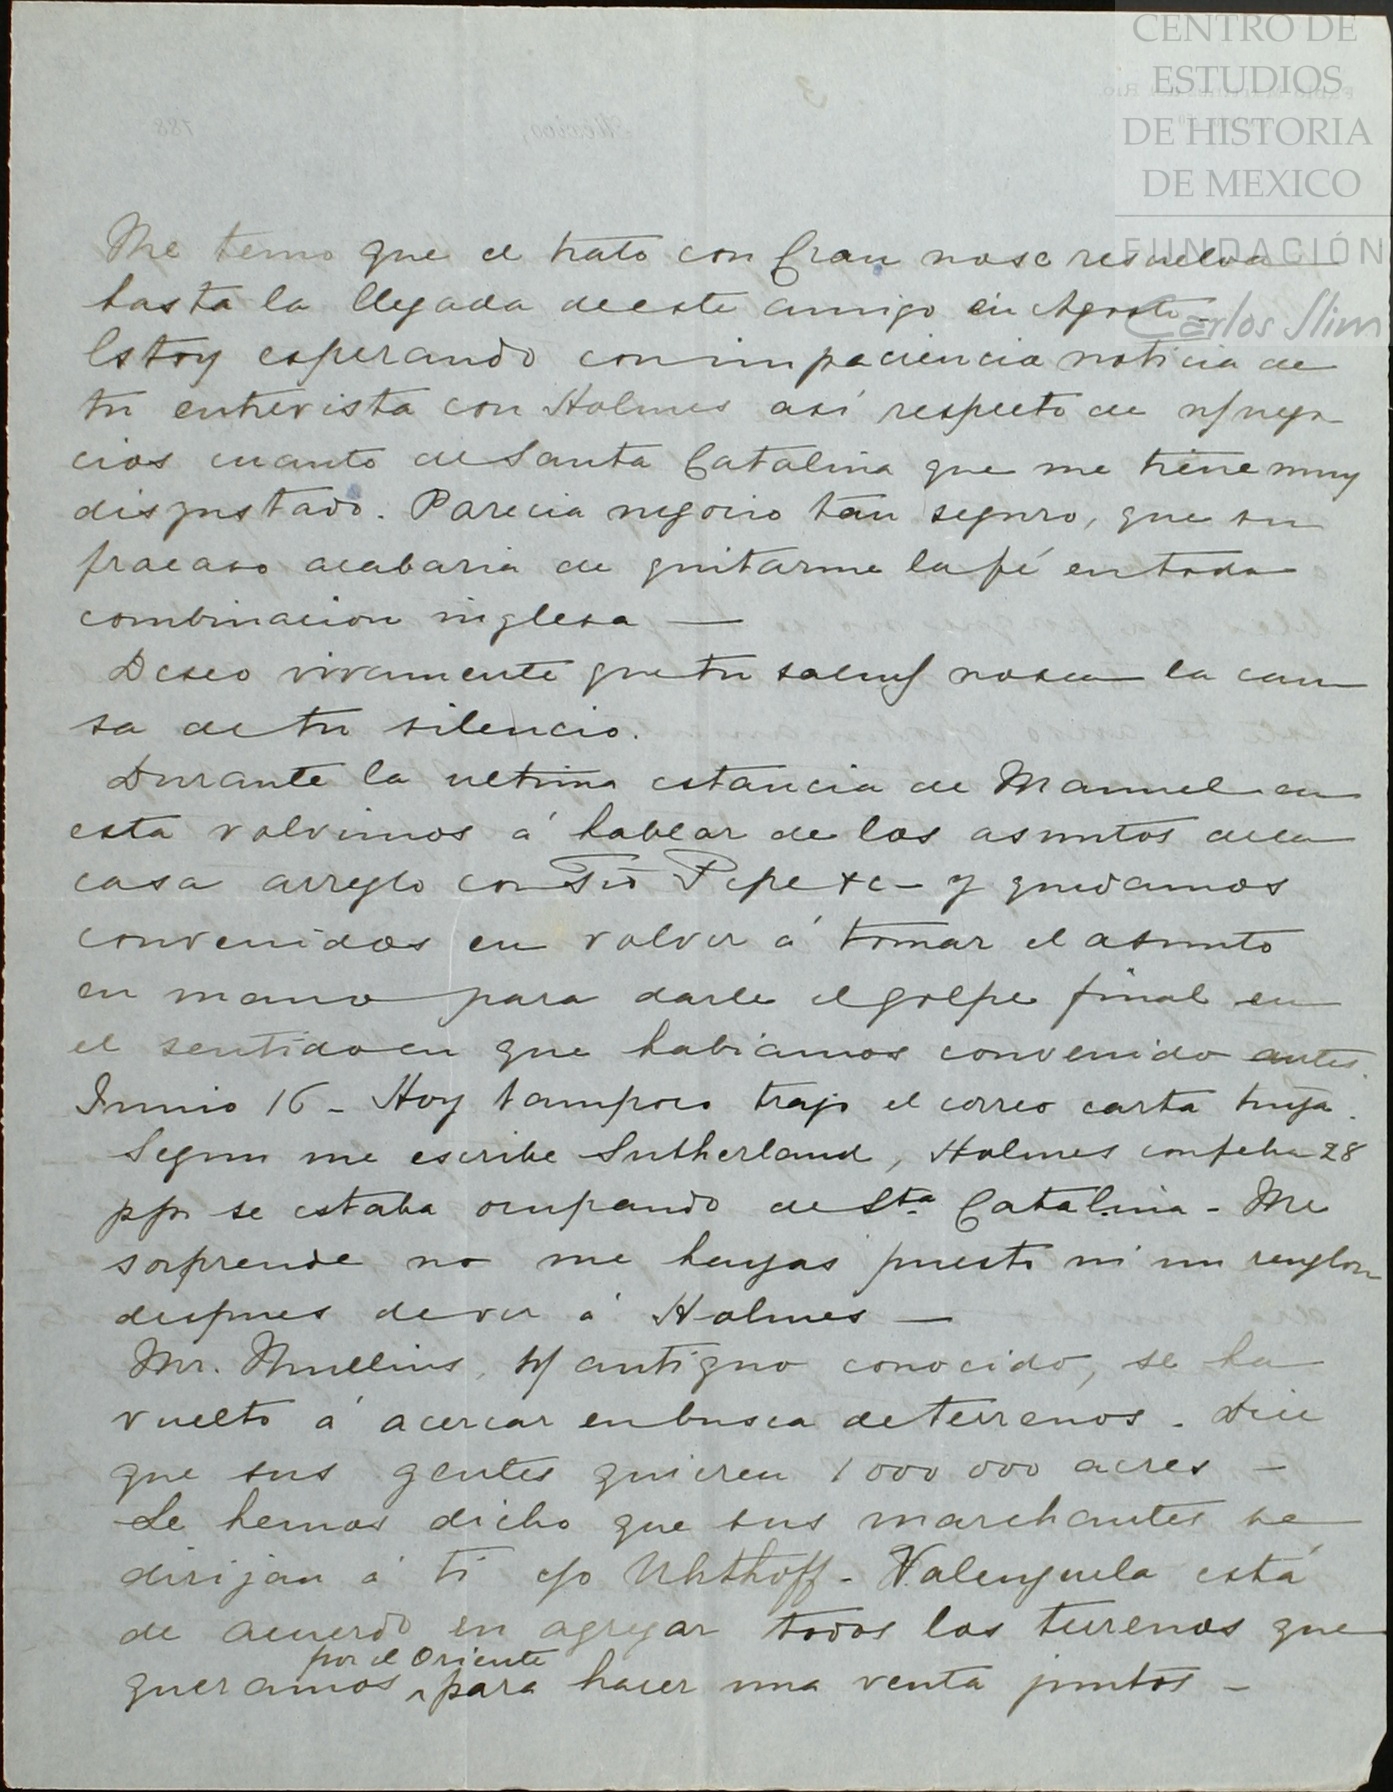 CENTRO DE
ESTUDIOS
DE HISTORIA
DE MEXICO
FUNDACIÓN
Carlos Slim
3
México, 188
Me temo que el trato con Gran no se resuelva
hasta la llegada de este amigo en Agosto –
Estoy esperando con impaciencia noticia de
tu entrevista con Holmes así respecto de n/ nego
cios cuanto de Santa Catalina que me tiene muy
disgustado. Parecia negocio tan seguro, que su
fracaso acabaria de quitarme la fé en toda
combinacion inglesa —
Deseo vivamente que tu salud no sea la cau
sa de tu silencio.
Durante la ultima estancia de Manuel en
esta volvimos á hablar de los asuntos de la
casa arreglo con Tio Pepe &c – y quedamos
convenidos en volver á tomar el asunto
en mano para darle el golpe final en
el sentido en que habiamos convenido antes.
Junio 16 – Hoy tampoco trajo el correo carta tuya.
Segun me escribe Sutherland, Holmes con fecha 28
ppo se estaba ocupando de Sta. Catalina – Me
sorprende no me hayas puesto ni un renglon
despues de ver á Holmes —
Mr. Mullins, n/ antiguo conocido, se ha
vuelto á acercar en busca de terrenos. Dice
que sus gentes quieren 1 000 000 acres –
Le hemos dicho que sus marchantes se
dirijan á ti c/o Uhthoff – Valenzuela está
de acuerdo en agregar todos los terrenos que
por el Oriente
queramos ^ para hacer una venta juntos –